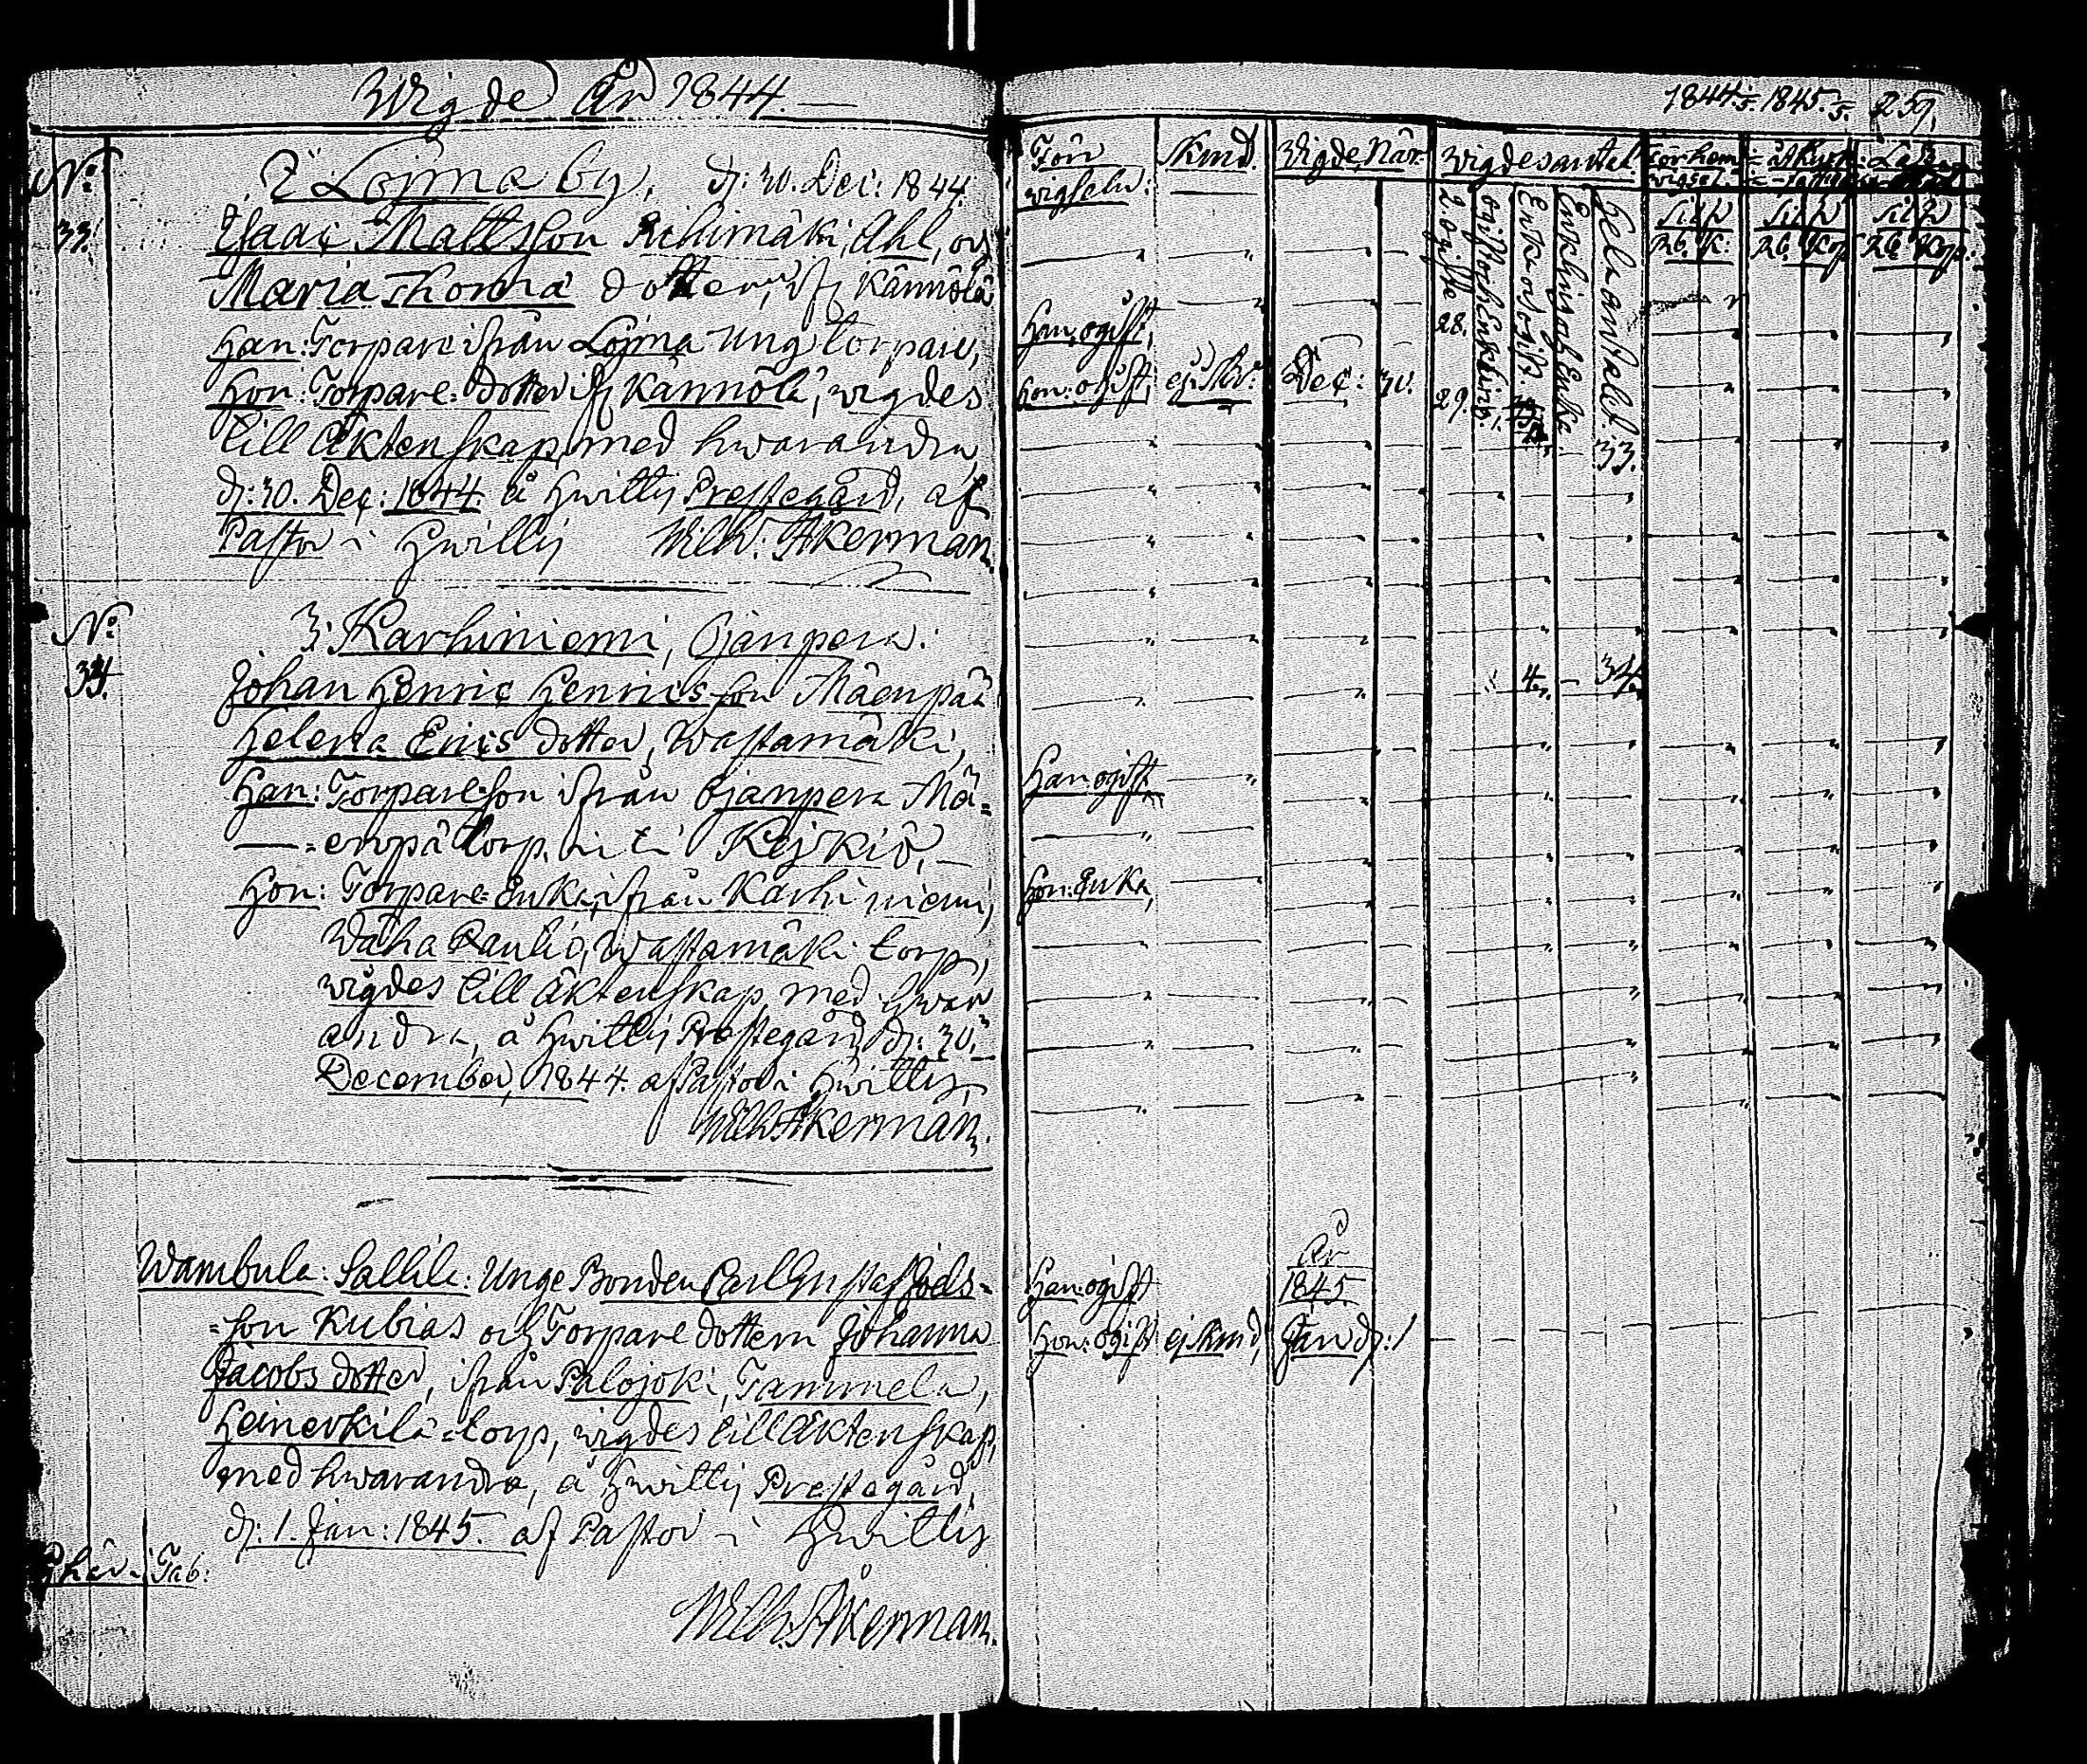 Wigde År 1844.
No: 33.
Lojma by, d: 30. Dec: 1844.
Isaac Mattsson Rihimäki, Ahl, och
Maria Thoma dotter, ifr Kännölä
Han: Torpare ifrån Lojma ung torpare,
Hon: Torpare-dotter ifr Kännölä, wigdes
till Äktenskap med hwarandra
d: 30. Dec: 1844. å Hwittis Prestegård, af
Pastor i Hwittis Wilh: Åkerman.
No: 34.
3: Karhiniemi, Ojanpera:
Johan Henric Henricsson Mäenpää
Helena Erics dotter, Wastamäki,
Han: Torpareson ifrån Ojanpera Mä=
=enpä torp, i Kejkiö,
Hon: Torpare-Enka, ifrån Karhiniemi,
Wäha Raulio, Wastamäki torp,
wigdes till Äktenskap med hwar
andra, å Hwittis Prestegård, d: 30.
December, 1844. af Pastor i Hwittis,
Wilh. Åkerman.
Wambula: Sallila: Unge Bonden Carl Gustaf Joels=
=son Kubias och Torpare dottern Johanna
Jacobs dotter, ifrån Palojoki, Tammela,
Heinerkilä-torp, wigdes till Äktenskap,
med hwarandra, å Hwittis Prestegård,
d: 1. Jan: 1845. af Pastor i Hwittis
Wilh. Åkerman.
1844. 1845. 259.
Före wigseln: Kmd. Wigde, När. Wigdes antal.
2 ogifte
Hela antalet.
Han: ogift,
28.
Hon: ogift, Dec: 30. 29. 33.
4. 34.
Han ogift
Hon: Enka,
År
Han: ogift 1845
Hon: ogift Jan d: 1